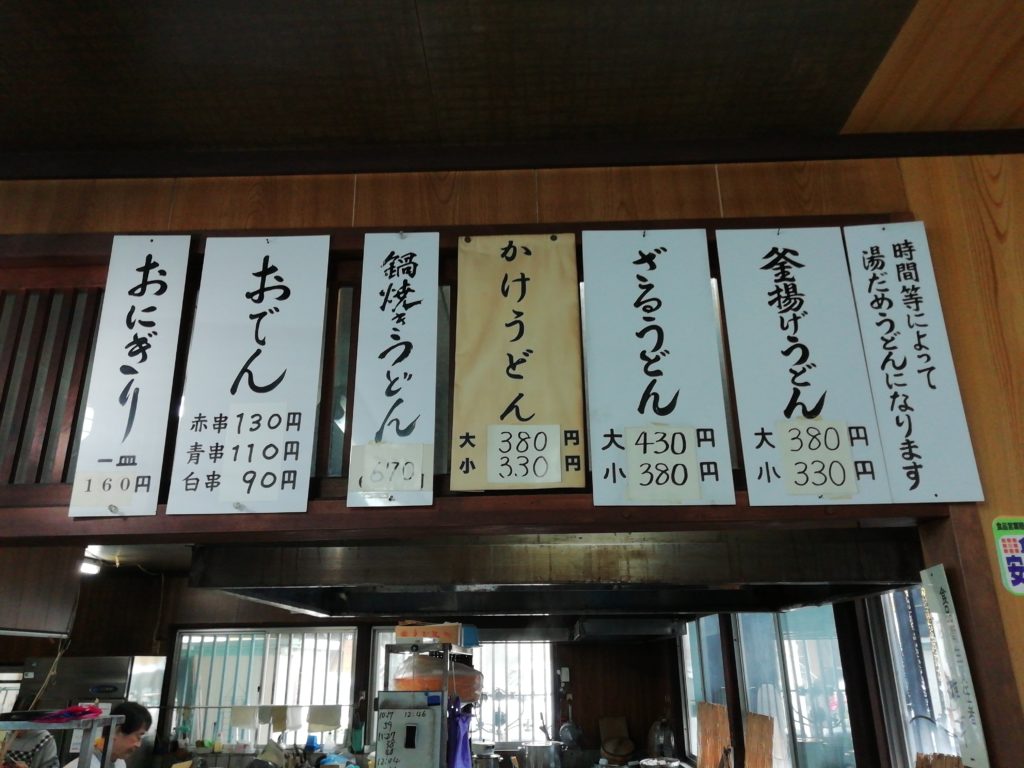 時間等によって
湯だめうどんになります
釜揚げうどん
大 380円
小 330
ざるうどん
大 430円
小 380円
かけうどん
大 380円
小 330円
鍋焼きうどん
670
おでん
赤串130円
青串110円
白串 90円
おにぎり
一皿
160円
12:46
11:27
12:04